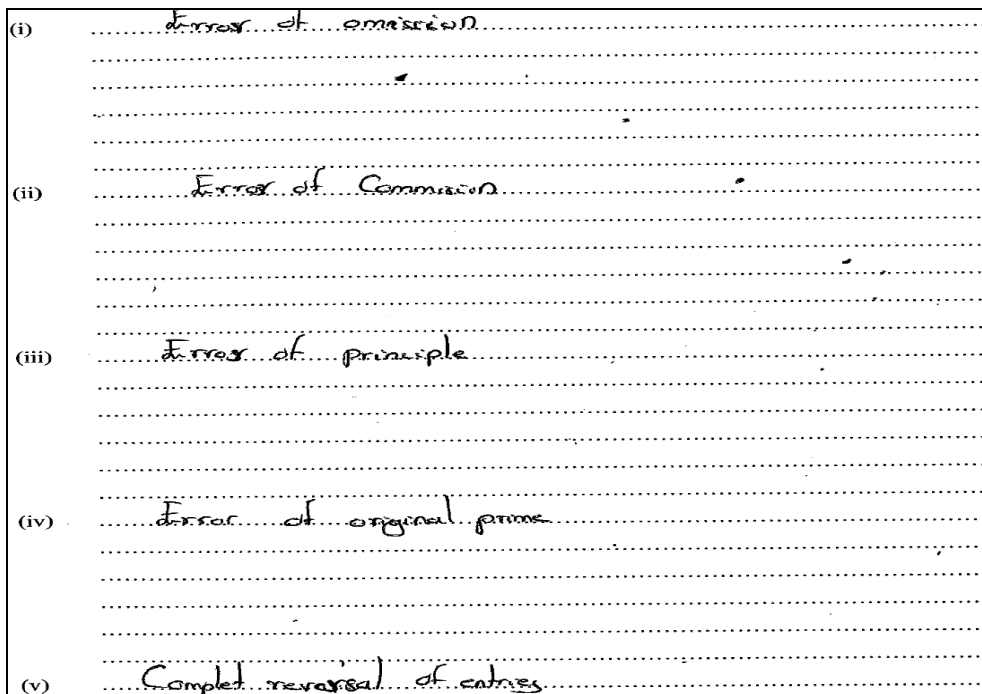 (i) Error of omission
(ii) Error of Commision
(iii) Error of principle
(iv) Error of original prime
(v) Complet reversal of entries